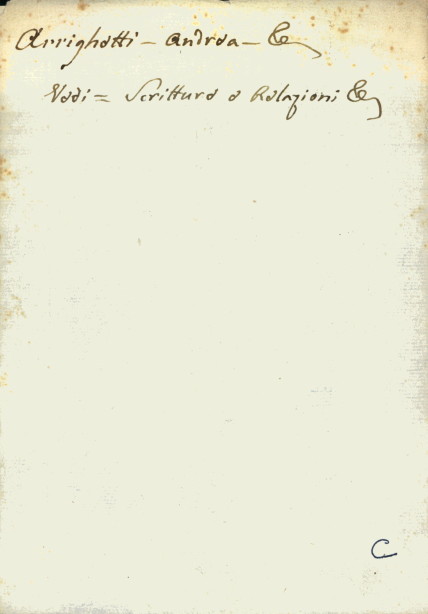 Arrighetti - Andrea - &c
Vedi = Scritture e Relazioni &c
C